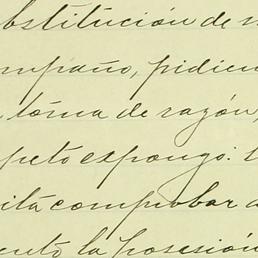 bstitución de
mpaño, pidien
toma de razón,
peto expongo:
ita comprobar
ento la posesión